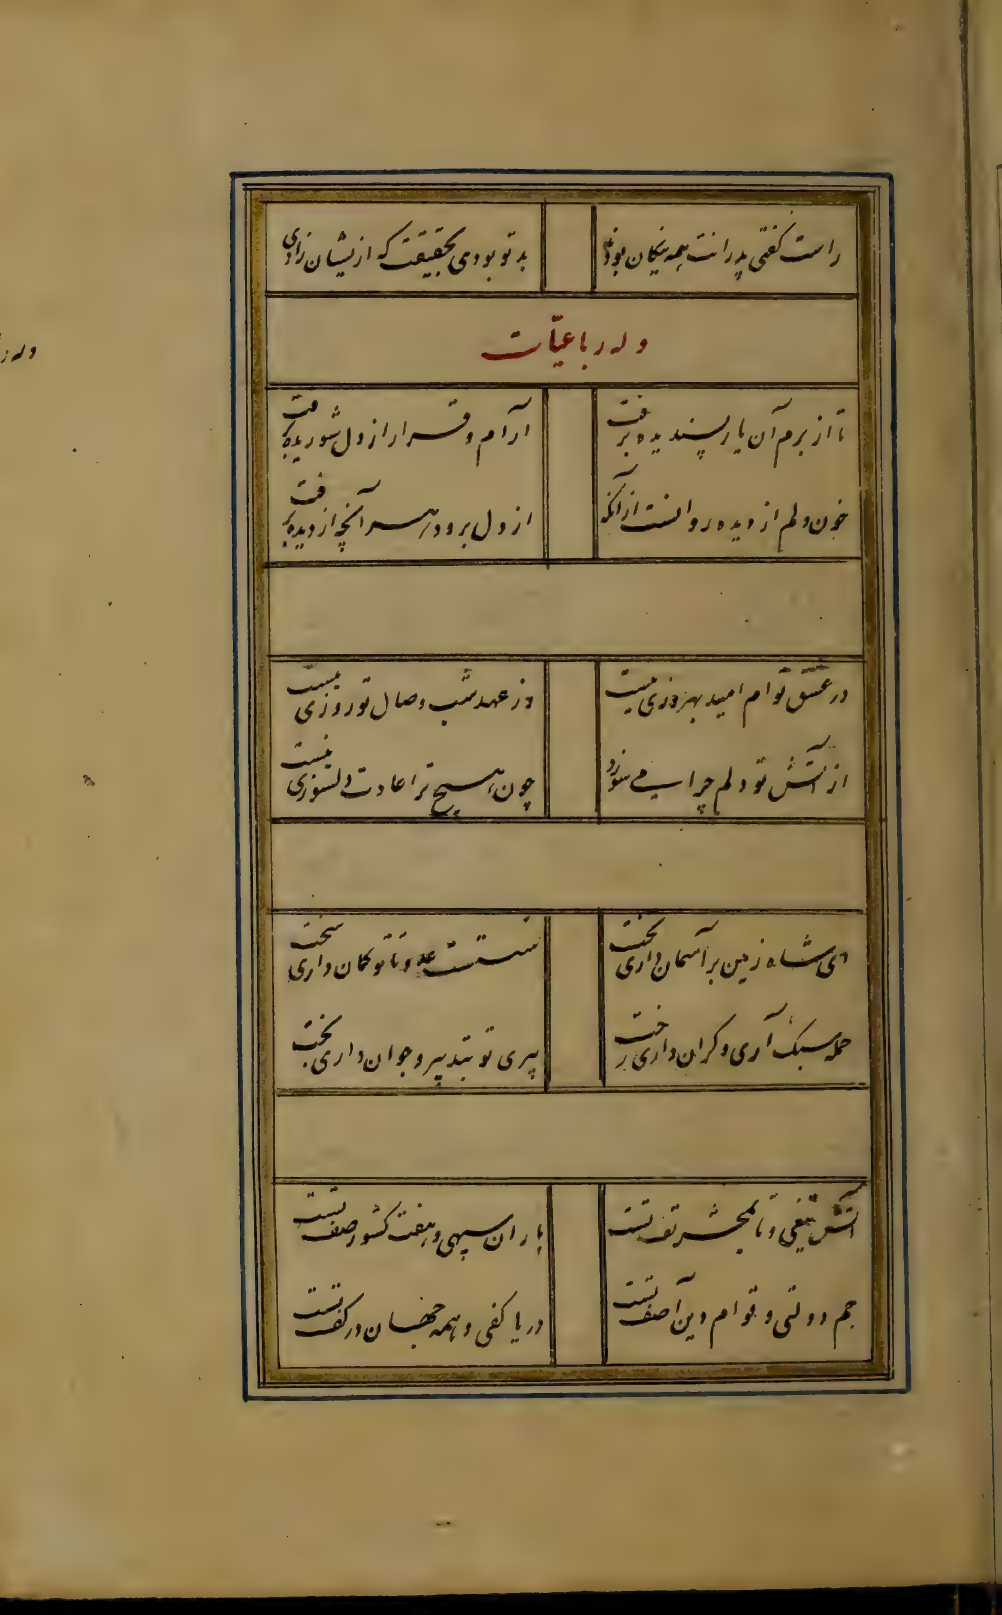 راست گفتی پدرانت همه نیکان بودند
بد تو بودی بحقیقت که ازیشان زادی
وله رباعیّات
تا از برم آن یار پسندیده برفت
آرام و قرار از دل شوریده برفت
خون دلم از دیده روانست از آنکه
از دل برود هر آنچه از دیده برفت
در عشق توام امید بهروزی نیست
وز عهد شب وصال تو روزی نیست
از آتش تو دلم چرا می سوزد
چون هیچ ترا عادت دلسوزی نیست
ای شاه زمین بر آسمان داری تخت
سستست عدو تا تو کمان داری سخت
حمله سبک آری و گران داری رخت
پیری تو بتدبیر و جوان داری بخت
آتش تیغی و تا بمحشر تف تست
باران سپهی و هفت کشور صف تست
جم دولتی و قوام دین آصف تست
دریا کفی و همه جهان در کف تست